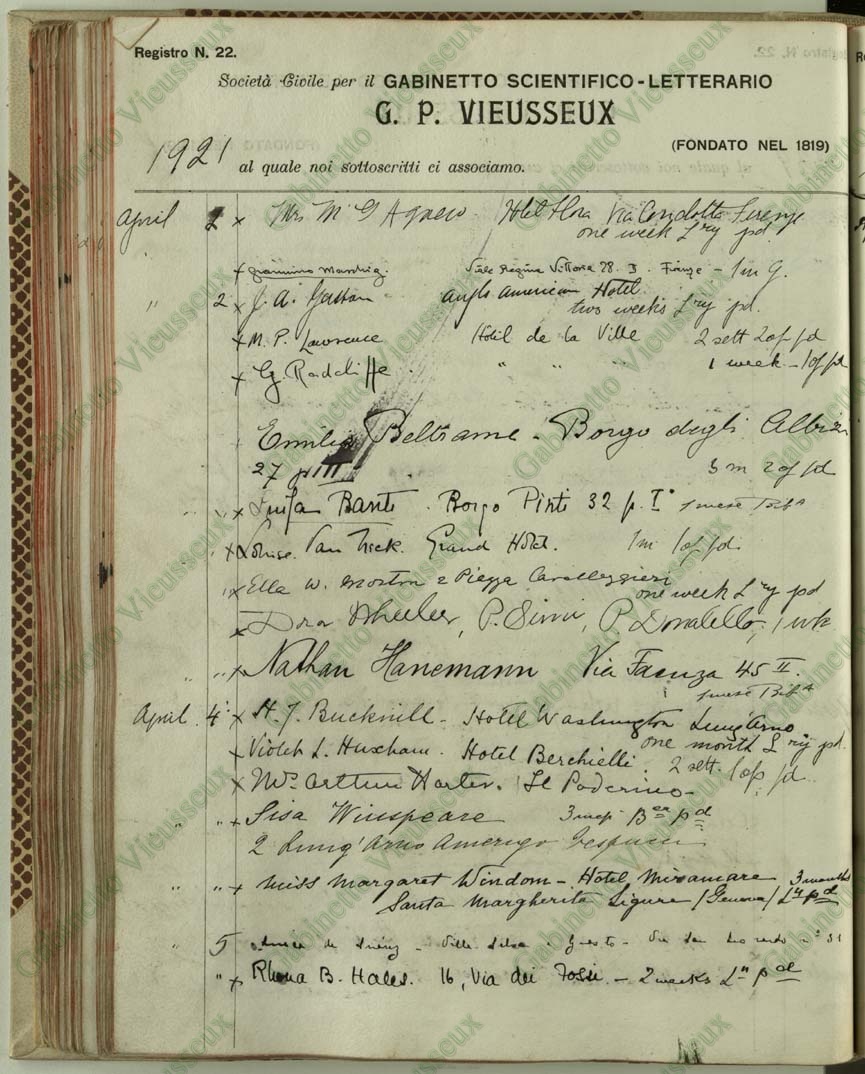 Registro N. 22.
Società Civile per il GABINETTO SCIENTIFICO-LETTERARIO
G. P. VIEUSSEUX
(FONDATO NEL 1819)
1921
al quale noi sottoscritti ci associamo.
April 2 x Mrs M G Agnew Hotel Flora Via Condotta Firenze
one week L ry pd.
x Viale Regina Vittoria 28. I. Firenze - 1 m G.
" 2 x J. A. Anglo American Hotel
two weeks L ry pd.
x M. P. Lawrence Hotel de la Ville 2 sett 2 op pd
x G. Radcliffe " " " 1 week - 1 op pd
Emilia Beltrame - Borgo degli Albizi
27 p III 3 m 2 op pd
" x Luisa Banti. Borgo Pinti 32 p. I° 1 mese
" x Louise Van Grand Hotel. 1m 1 op pd.
" x Ella W. 2 Piazza Cavalleggieri
one week L ry pd
x Dora Wheeler, P. Simi, P. Donatello, 1 wk
" " x Nathan Hanemann Via Faenza 45 II.
1 mese
April 4 x H. J. Bucknill - Hotel Washington Lung'Arno
one month L ry pd.
x Violet L. Huxham. Hotel Berchielli. 2 sett. 1 op pd
x Mrs Arthur Harter. Il Poderino -
" " x Lisa Winspeare 3 mesi pd
2 Lung'Arno Amerigo Vespucci
" " x Miss Margaret Windom - Hotel Miramare 3 months
Santa Margherita Ligure (Genova) L ry pd
" 5 de - Villa - Via San Leonardo n° 31
" x Rhona B. Hales. 16, Via dei Fossi. - 2 weeks L ry pd
Gabinetto Vieusseux